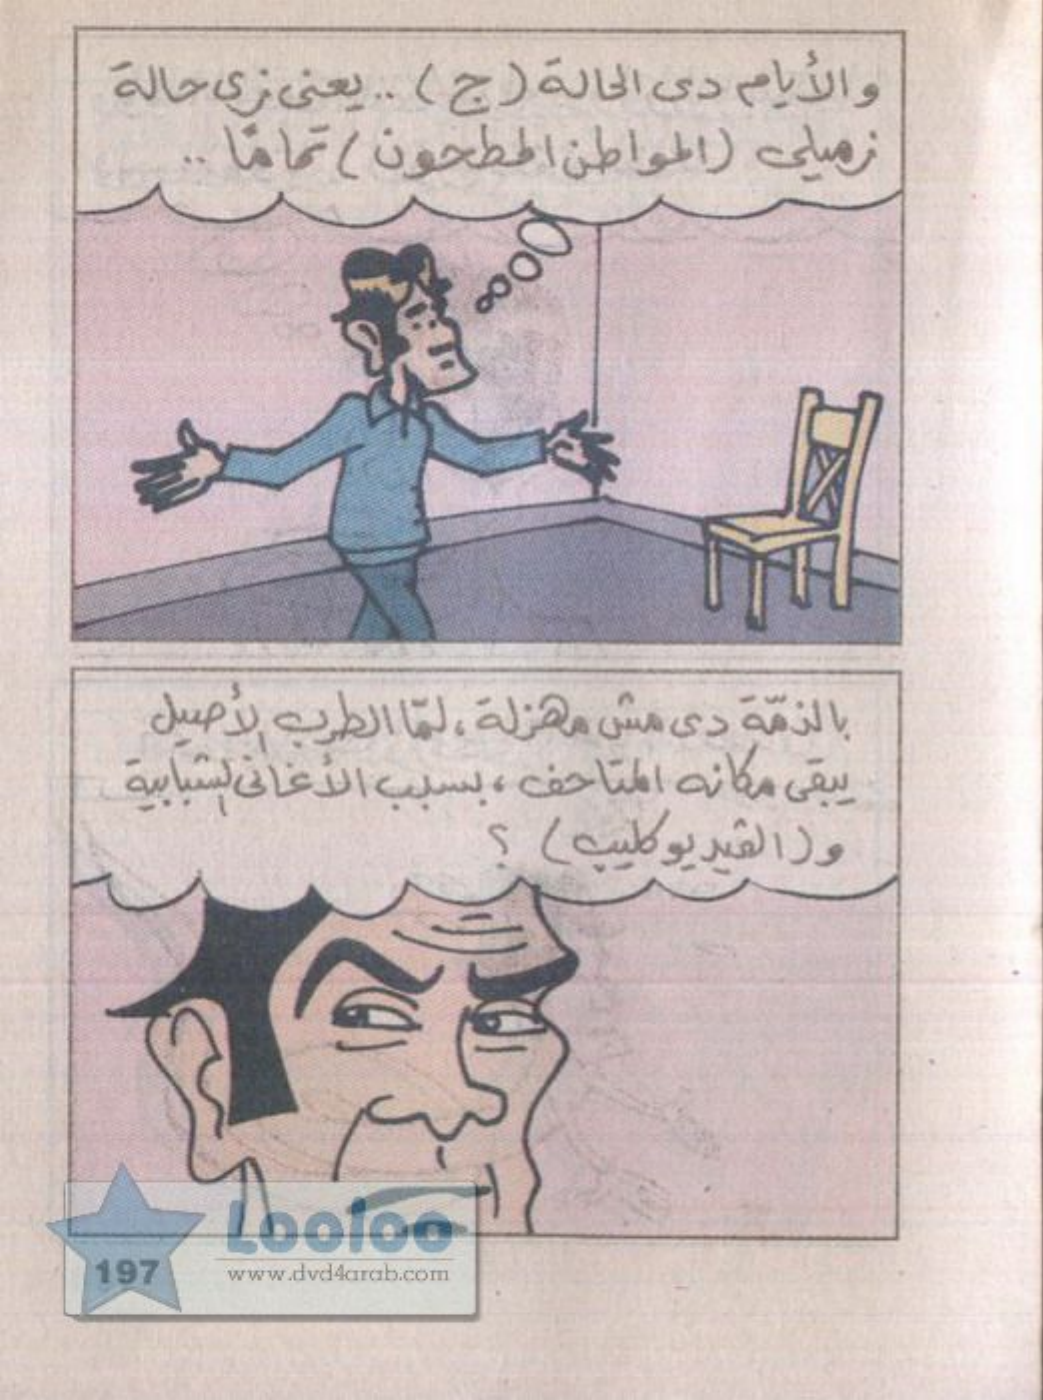 والأيام دى الحالة (ج) .. يعنى زى حالة
زميلى (المواطن المطحون) تمامًا ..
بالذمّة دى مش مهزلة ، لمّا الطرب الأصيل
يبقى مكانه المتاحف ، بسبب الأغانى الشبابية
و (الڤيديو كليب) ؟
Looloo
www.dvd4arab.com
197